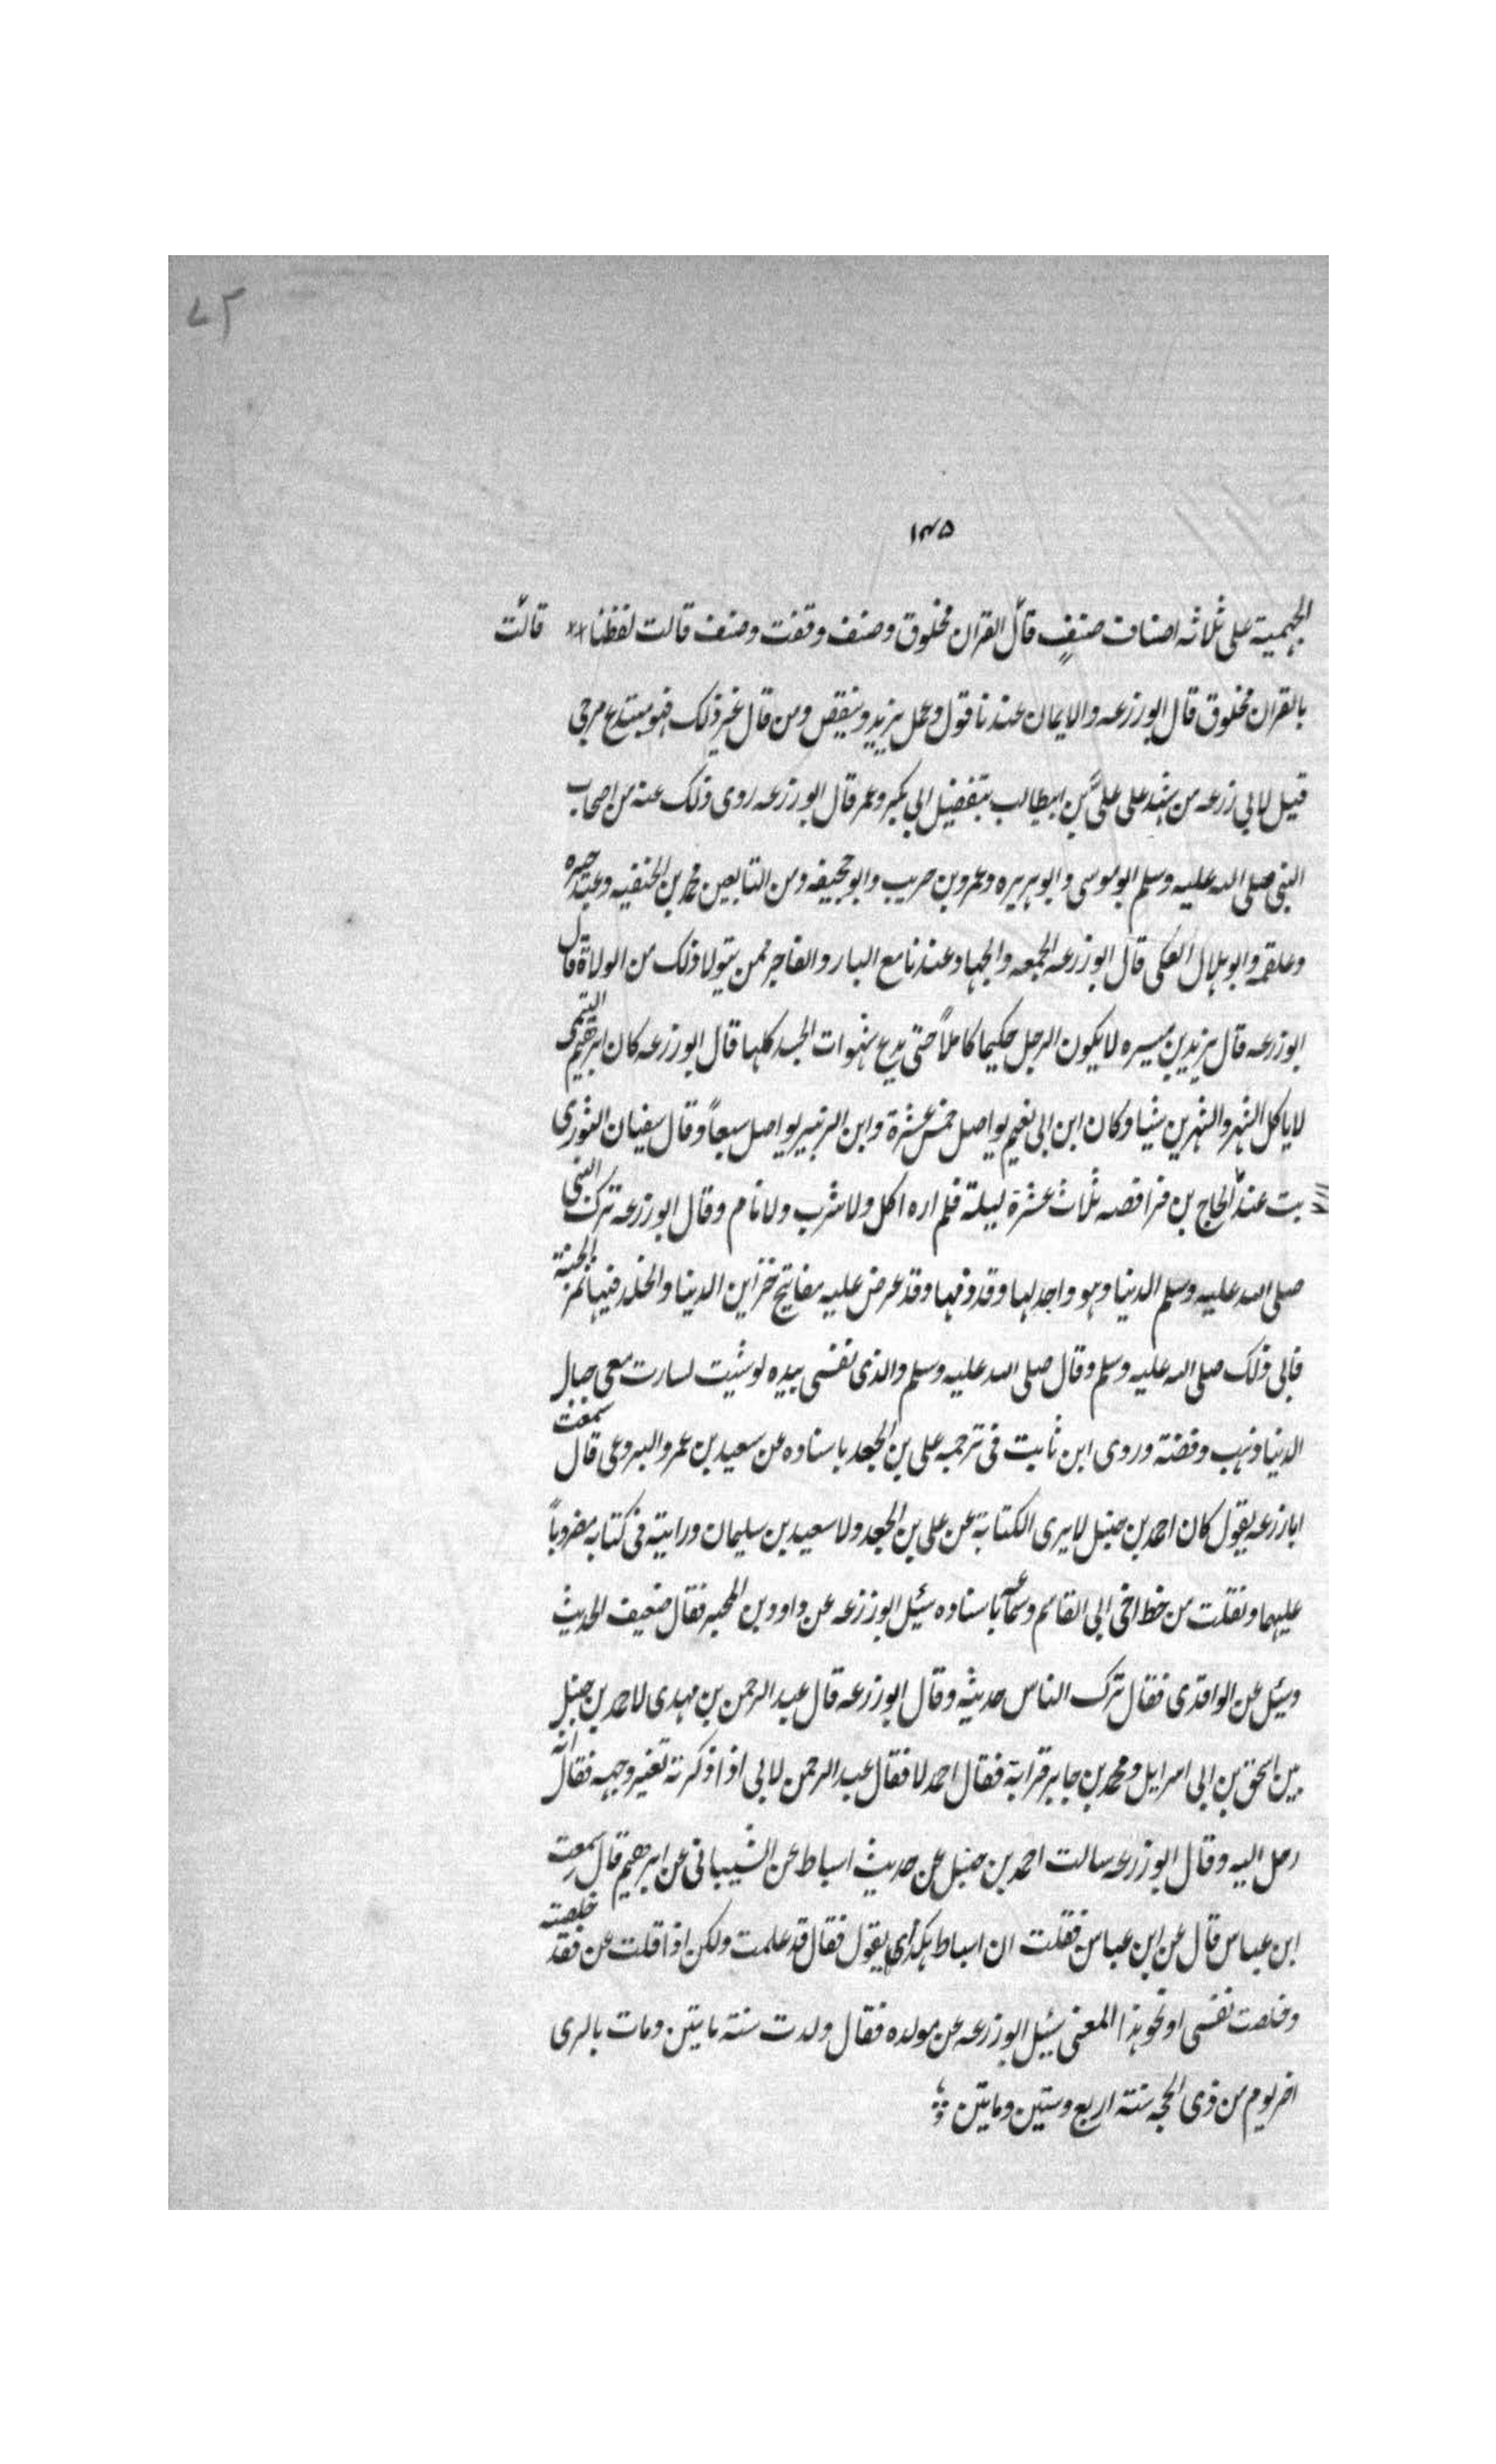 ۷۳
۱۳۵
الجهمية على ثلاثه اصناف صنفٍ قال القران مخلوق وصنف وقفت وصنف قالت لفظنا قالت
بالقران مخلوق قال ابو زرعه والايمان عندنا قول وعمل يزيد وينقص ومن قال غير ذلك فهو مبتدع مرجى
قيل لابى زرعه من يشهد على على بن ابيطالب بتفضيل ابى بكر وعمر قال ابو زرعه روى ذلك عنه من اصحاب
النبى صلى الله عليه وسلم ابو موسى وابو هريره وعمرو بن حريب وابو جحيفه ومن التابعين محمد بن الحنفيه وعبد خيره
وعلقمه وابو هلال العكى قال ابو زرعه الجمعه والجهاد عندنا مع البار والفاجر ممن يتولا ذلك من الولاة قال
ابو زرعه قال يزيد بن ميسره لا يكون الرجل حكيما كاملاً حتى يدع شهوات الجسد كلها قال ابو زرعه كان ابرهيم التيمى
لا ياكل الشهر والشهرين شيا وكان ابن ابى نعيم يواصل خمس عشرة وابن الزبير يواصل سبعاً وقال سفيان الثورى
بت عند الحاج بن فرافصه ثلاث عشرة ليلة فلم اره اكل ولا شرب ولا نام وقال ابو زرعه ترك النبى
صلى الله عليه وسلم الدنيا وهو واجد لها وقد وفها وقد عرض عليه مفاتيح خزاين الدنيا والخلد فيها ثم الجنة
فابى ذلك صلى الله عليه وسلم وقال صلى الله عليه وسلم والذى نفسى بيده لو شيت لسارت معى جبال
الدنيا ذهب وفضة وروى ابن ثابت فى ترجمه على بن الجعد باسناده عن سعيد بن عمرو البروعى قال سمعت
ابا زرعه يقول كان احمد بن حنبل لا يرى الكتابة عن على بن الجعد ولا سعيد بن سليمان ورايته فى كتابه مضروباً
عليهما ونقلت من خط اخى ابى القاسم وسماعه باسناده سئيل ابو زرعه عن داود بن المحبر فقال ضعيف الحديث
وسئيل عن الواقدى فقال ترك الناس حديثه وقال ابو زرعه قال عبد الرحمن بن مهدى لاحمد بن حنبل
بين اسحق بن ابى اسرايل ومحمد بن جابر قرابة فقال احمد لا فقال عبد الرحمن لابى اذا ذكرته تغير وجهه فقال انه
رحل اليه وقال ابو زرعه سالت احمد بن حنبل عن حديث اسباط عن الشيبانى عن ابرهيم قال سمعت
ابن عباس قال عن ابن عباس فقلت ان اسباط هكذى يقول فقال قد علمت ولكن اذا قلت عن فقد خلصته
وخلصت نفسى او نحو هذا المعنى سئيل ابو زرعه عن مولده فقال ولدت سنة مايتين ومات بالرى
اخر يوم من ذى الحجه سنة اربع وستين ومايتين